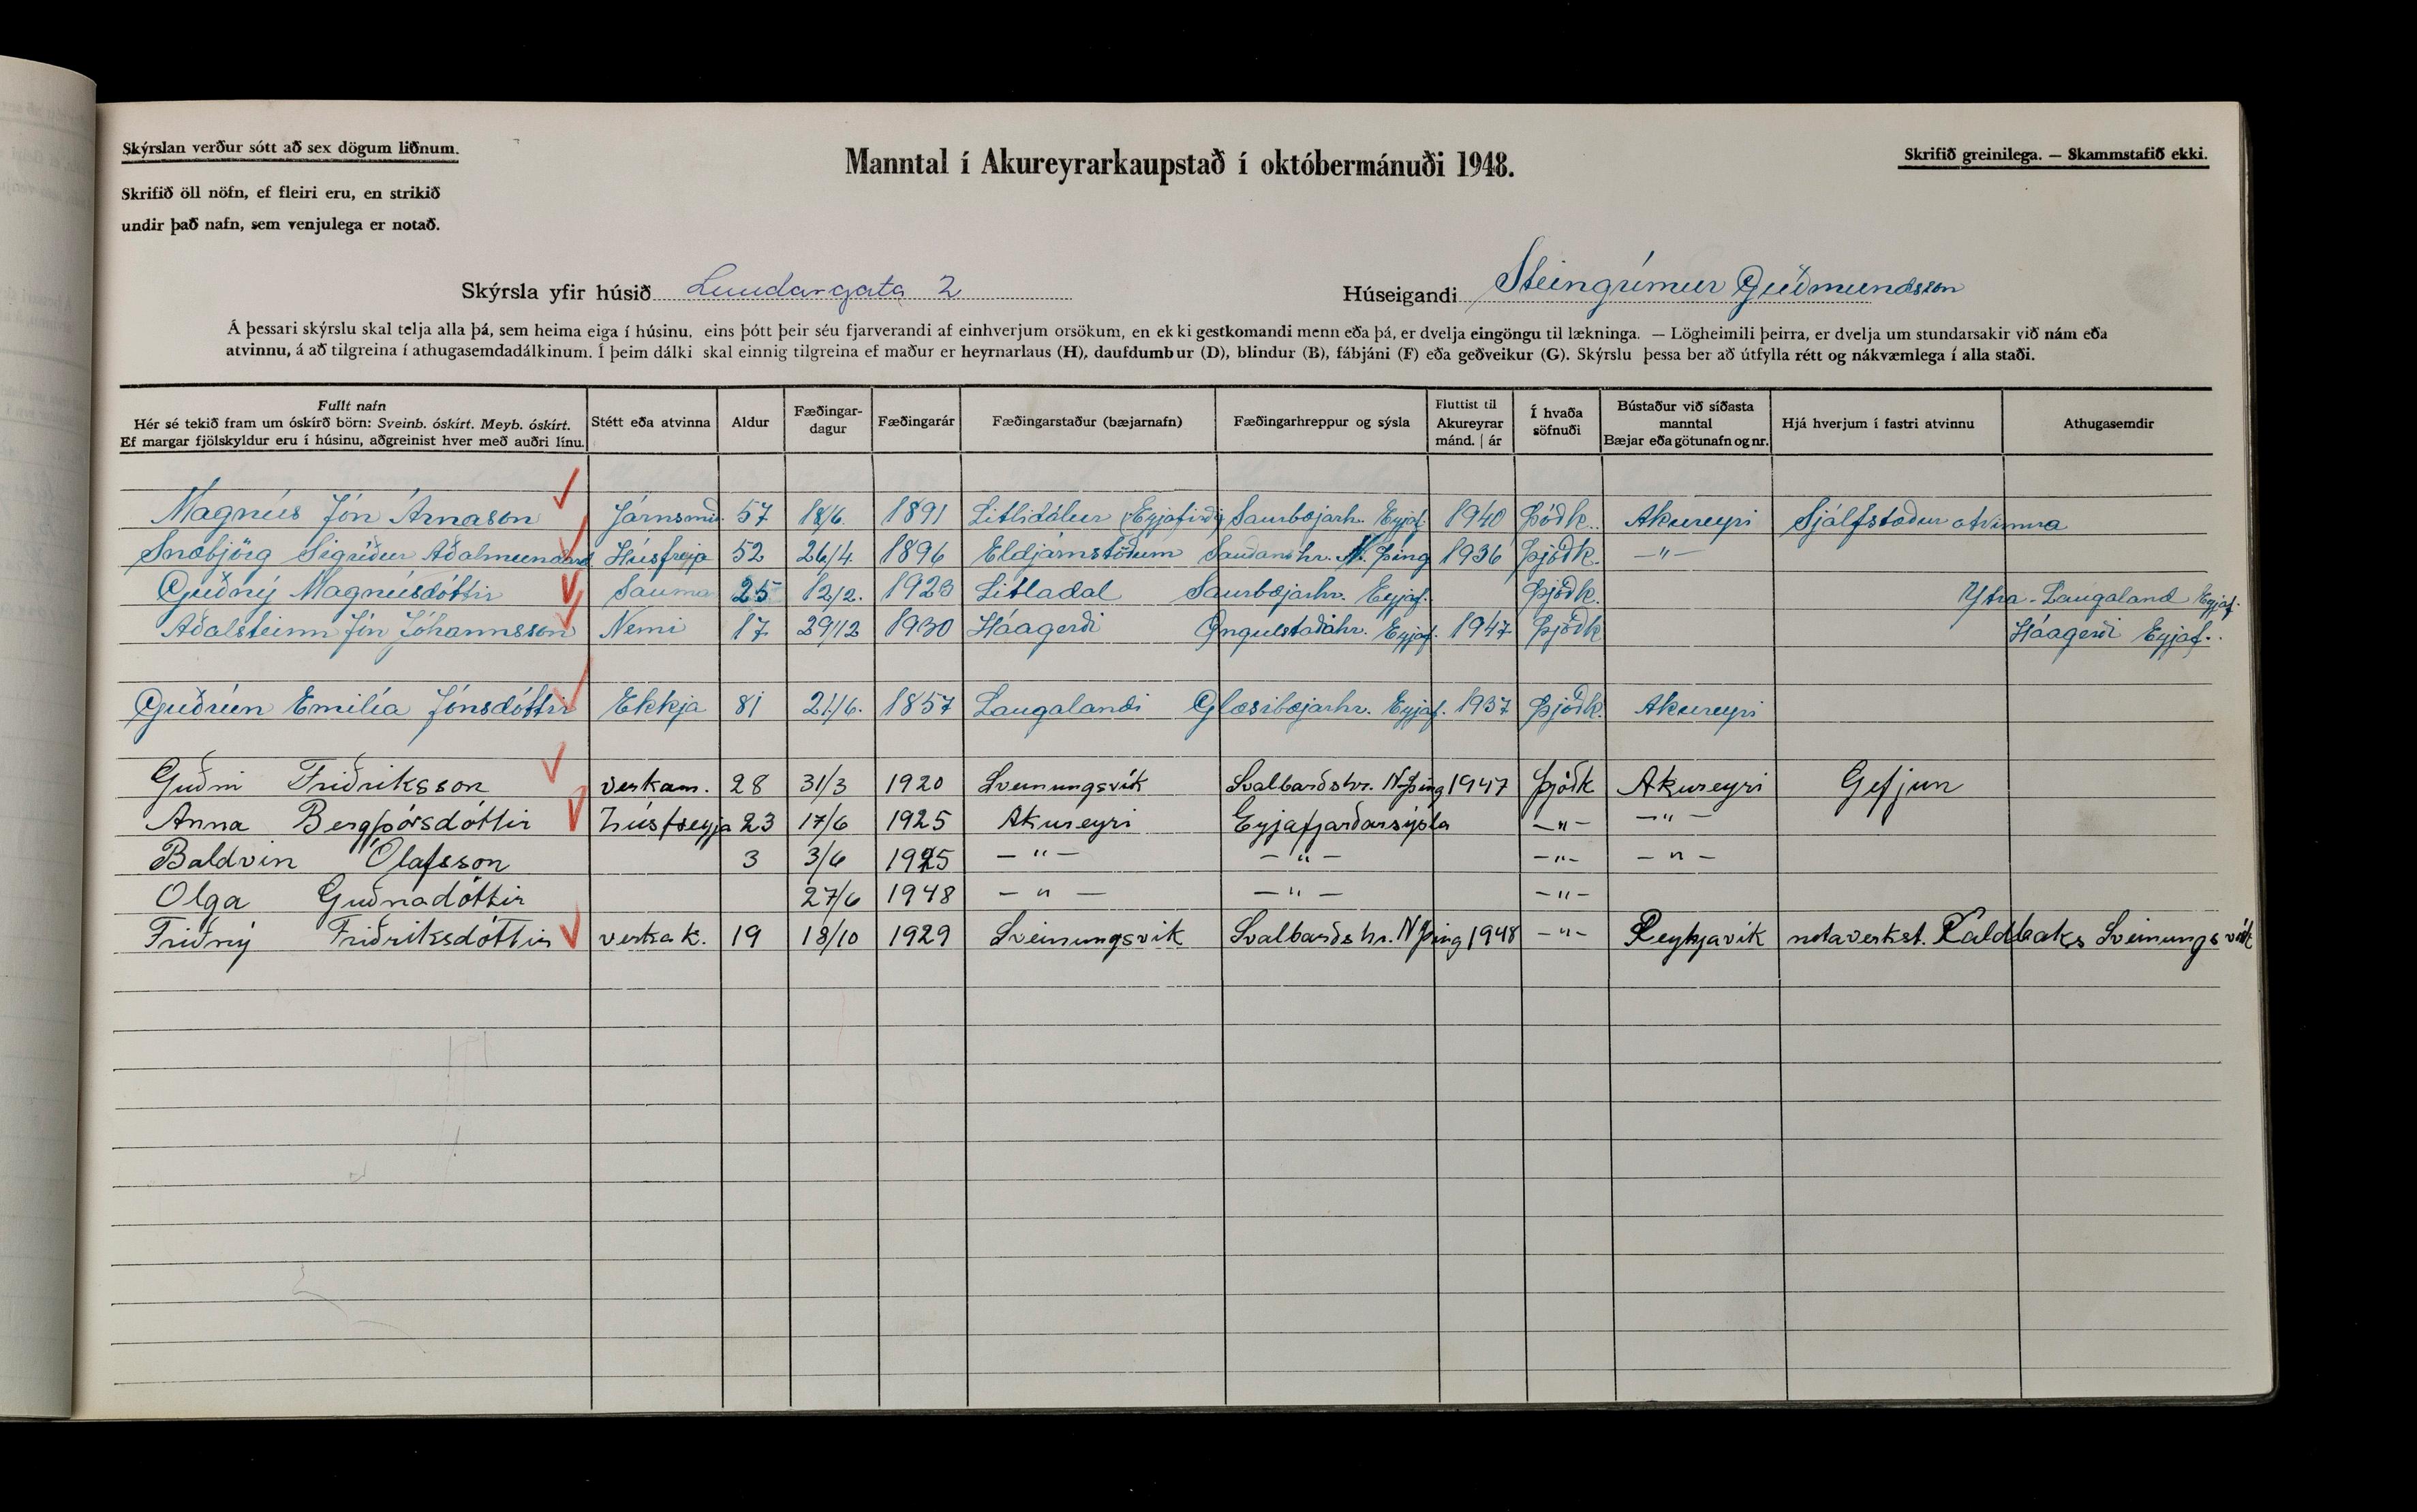 Skýrslan verður sótt að sex dögum liðnum.
Manntal í Akureyrarkaupstað í októbermánuði 1948.
Skrifið greinilega. — Skammstafið ekki.
Skrifið öll nöfn, ef fleiri eru, en strikið
undir það nafn, sem venjulega er notað.
Skýrsla yfir húsið Lundargata 2 Húseigandi Steingrímur Guðmundsson
Á þessari skýrslu skal telja alla þá, sem heima eiga í húsinu, eins þótt þeir séu fjarverandi af einhverjum orsökum, en ekki gestkomandi menn eða þá, er dvelja eingöngu til lækninga. — Lögheimili þeirra, er dvelja um stundarsakir við nám eða
atvinnu, á að tilgreina í athugasemdadálkinum. Í þeim dálki skal einnig tilgreina ef maður er heyrnarlaus (H), daufdumbur (D), blindur (B), fábjáni (F) eða geðveikur (G). Skýrslu þessa ber að útfylla rétt og nákvæmlega í alla staði.
Fullt nafn
Hér sé tekið fram um óskírð börn: Sveinb. óskírt. Meyb. óskírt.
Ef margar fjölskyldur eru í húsinu, aðgreinist hver með auðri línu.
Stétt eða atvinna
Aldur
Fæðingar-
dagur
Fæðingarár
Fæðingarstaður (bæjarnafn)
Fæðingarhreppur og sýsla
Fluttist til
Akureyrar
mánd. | ár
Í hvaða
söfnuði
Bústaður við síðasta
manntal
Bæjar eða götunafn og nr.
Hjá hverjum í fastri atvinnu
Athugasemdir
Magnús Jón Árnason Járnsmið. 57 18/6. 1891 Litlidalur (Eyjafirði) Saurbæjarh. Eyjaf. 1940 Þóðk. Akureyri Sjálfstæður atvinna
Snæbjörg Sigríður Aðalmundard Húsfreyja 52 26/4. 1896 Eldjárnstöðum Sauðanshr. N. Þing 1936 Þjóðk. —"—
Guðný Magnúsdóttir Sauma 25 12/2. 1923 Litladal Saurbæjarhr. Eyjaf. Þjóðk. Ytra-Laugaland Eyjaf.
Aðalsteinn Jón Jóhannsson Nemi 17 29/12 1930 Háagerði Öngulstaðahr. Eyjaf. 1947 Þjóðk Háagerði Eyjaf.
Guðrún Emilía Jónsdóttir Ekkja 81 21/6. 1857 Laugalandi Glæsibæjarhr. Eyjaf. 1937 Þjóðk. Akureyri
Guðni Friðriksson verkam. 28 31/3 1920 Sveinungsvík Svalbarðshr. N-Þing 1947 Þjóðk Akureyri Gefjun
Anna Bergþórsdóttir Húsfreyja 23 17/6 1925 Akureyri Eyjafjarðarsýsla —"— —"—
Baldvin Ólafsson 3 3/6 1945 —"— —"— —"— —"—
Olga Guðnadóttir 27/6 1948 —"— —"— —"—
Friðný Friðriksdóttir verkak. 19 18/10 1929 Sveinungsvík Svalbarðshr. N Þing 1948 —"— Reykjavík nótaverkst. Kaldbaks Sveinungsvík